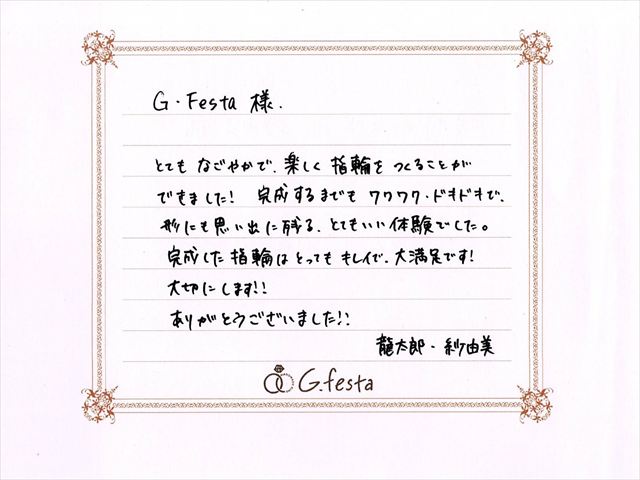 G・Festa 様.
とても なごやかで、楽しく 指輪を つくることが
できました! 完成するまでも ワクワク・ドキドキで、
形にも思い出に残る、とてもいい 体験でした。
完成した 指輪は とっても キレイで、大満足です!
大切にします!!
ありがとうございました!!
龍太郎・紗由美
G.festa